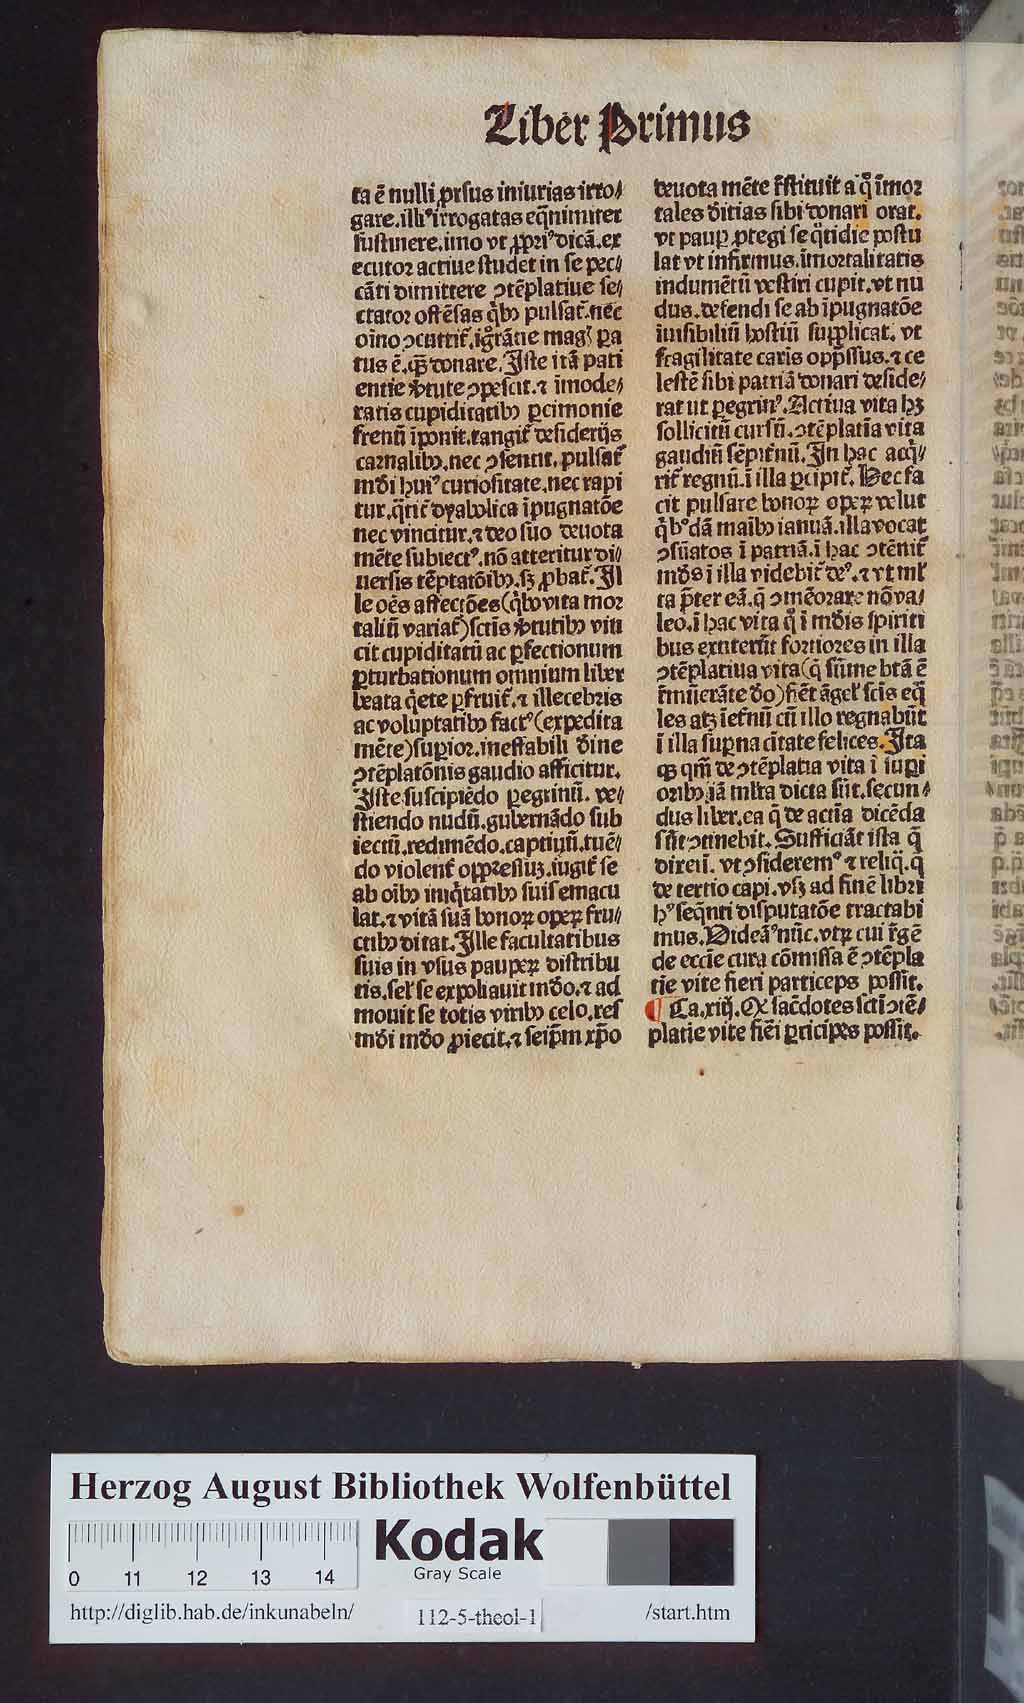 Liber Primus
ta ē nulli ꝓrsus iniurias irro⸗
gare. illiꝰ irrogatas eq̄nimiter
sustinere. imo vt ꝓpriꝰ dicā. ex
ecutor actiue studet in se pec⸗
cāti dimittere ↄtēplatiue se⸗
ctator offēsas q̇bꝰ pulsat᷑. nec
oīno ↄcutit᷑. igrātie
tus ē. qꝫ donare. Iste itā pati
entie v̄tute ↄpescit. ⁊ īmode⸗
ratis cupiditatibꝰ ꝑcimonie
frenū īponit. tangit᷑ desiderijs
carnalibꝰ. nec ↄsentit. pulsat᷑
mūdi huiꝰ curiositate. nec rapi
tur. q̄tit᷑ dyabolica īpugnatōe
nec vincitur. ⁊ deo suo deuota
mēte subiectꝰ. nō atteritur di⸗
uersis tēptatōibꝰ. sꝫ ꝓbat᷑. Il
le oēs affectōes (q̇bꝰ vita mor
taliū variat᷑) sctīs v̄tutibꝰ vin
cit cupiditatū ac ꝑfectionum
ꝑturbationum omnium liber
beata q̇ete ꝑfruit᷑. ⁊ illecebris
ac voluptatibꝰ factꝰ (expedita
mēte) superior. ineffabili diīne
ↄtēplatōnis gaudio afficitur.
Iste suscipiēdo ꝑegrinū. ve⸗
stiendo nudū. gubernādo sub
iectū. redimēdo. captiuū. tuē⸗
do violent᷑ oppressuꝫ. iugit᷑ se
ab oībꝰ iniq̇tatibꝰ suis emacu
lat. ⁊ vitā suā bonoꝝ opeꝝ fru⸗
ctibꝰ ditat. Ille facultatibus
suis in vsus paupeꝝ distribu
tis. sel᷑ se expoliauit mūdo. ⁊ ad
mouit se totis viribꝰ celo. res
mūdi mūdo ꝓiecit. ⁊ seip̄m xp̄o
deuota mēte r̄stituit a q̊ īmor
tales diītias sibi donari orat.
vt pauꝑ. ꝓtegi se q̊tidie postu
lat vt infirmus. īmortalitatis
indumētū vestiri cupit. vt nu
dus. defendi se ab īpugnatōe
iuisibiliū hostiū supplicat. vt
fragilitate carīs opp̄ssus. ⁊ ce
lestē sibi patriā donari deside⸗
rat ut ꝑegrinꝰ. Actiua vita hꝫ
sollicitū cursū. ↄtēplatīa vita
gaudiū sēpit᷑nū. In hac acq̇⸗
rit᷑ regnū. ī illa ꝑcipit᷑. Hec fa
cit pulsare bonoꝝ opeꝝ velut
q̇bꝰdā maībꝰ ianuā. illa vocat
ↄsūatos ī patriā. ī hac ↄtēnit᷑
mūdꝰ ī illa videbit᷑ deꝰ. ⁊ vt ml᷑
ta p̄ter eā. q̄ ↄmēorare nō va⸗
leo. ī hac vita q̊ ī mūdis spiriti
bus extiterūt fortiores in illa
ↄtēplatiua vita (q̄ sūme btā ē
r̄mūerāte do) fiēt āgel᷑ scīs eq̄
les atꝫ īet᷑nū cū illo regnabūt
ī illa suꝑna cītate felices. Ita
qꝫ qm̄ de ↄtēplatīa vita ī supi
oribꝰ iā ml᷑ta dicta sūt. secun⸗
dus liber. ea q̄ de actiīa dicēda
sūt ↄtinebit. Sufficiāt ista q̄
direxi. vt ↄsideremꝰ ⁊ reliq̄. q̄
de tertio capi. vsꝫ ad finē libri
hꝰ seq̄nti disputatōe tractabi
mus. Videāꝰ nūc. vtꝝ cui r̄gē
de eccīe cura cōmissa ē ↄtēpla
tīe vite fieri particeps possit.
¶ Ca. xiij. Qꝫ sacdotes scti ↄtē⸗
platīe vite fiēi ꝑticipes possit.
Herzog August Bibliothek Wolfenbüttel
0 11 12 13 14
Kodak
Gray Scale
http://diglib.hab.de/inkunabeln/ 112-5-theol-1 /start.htm